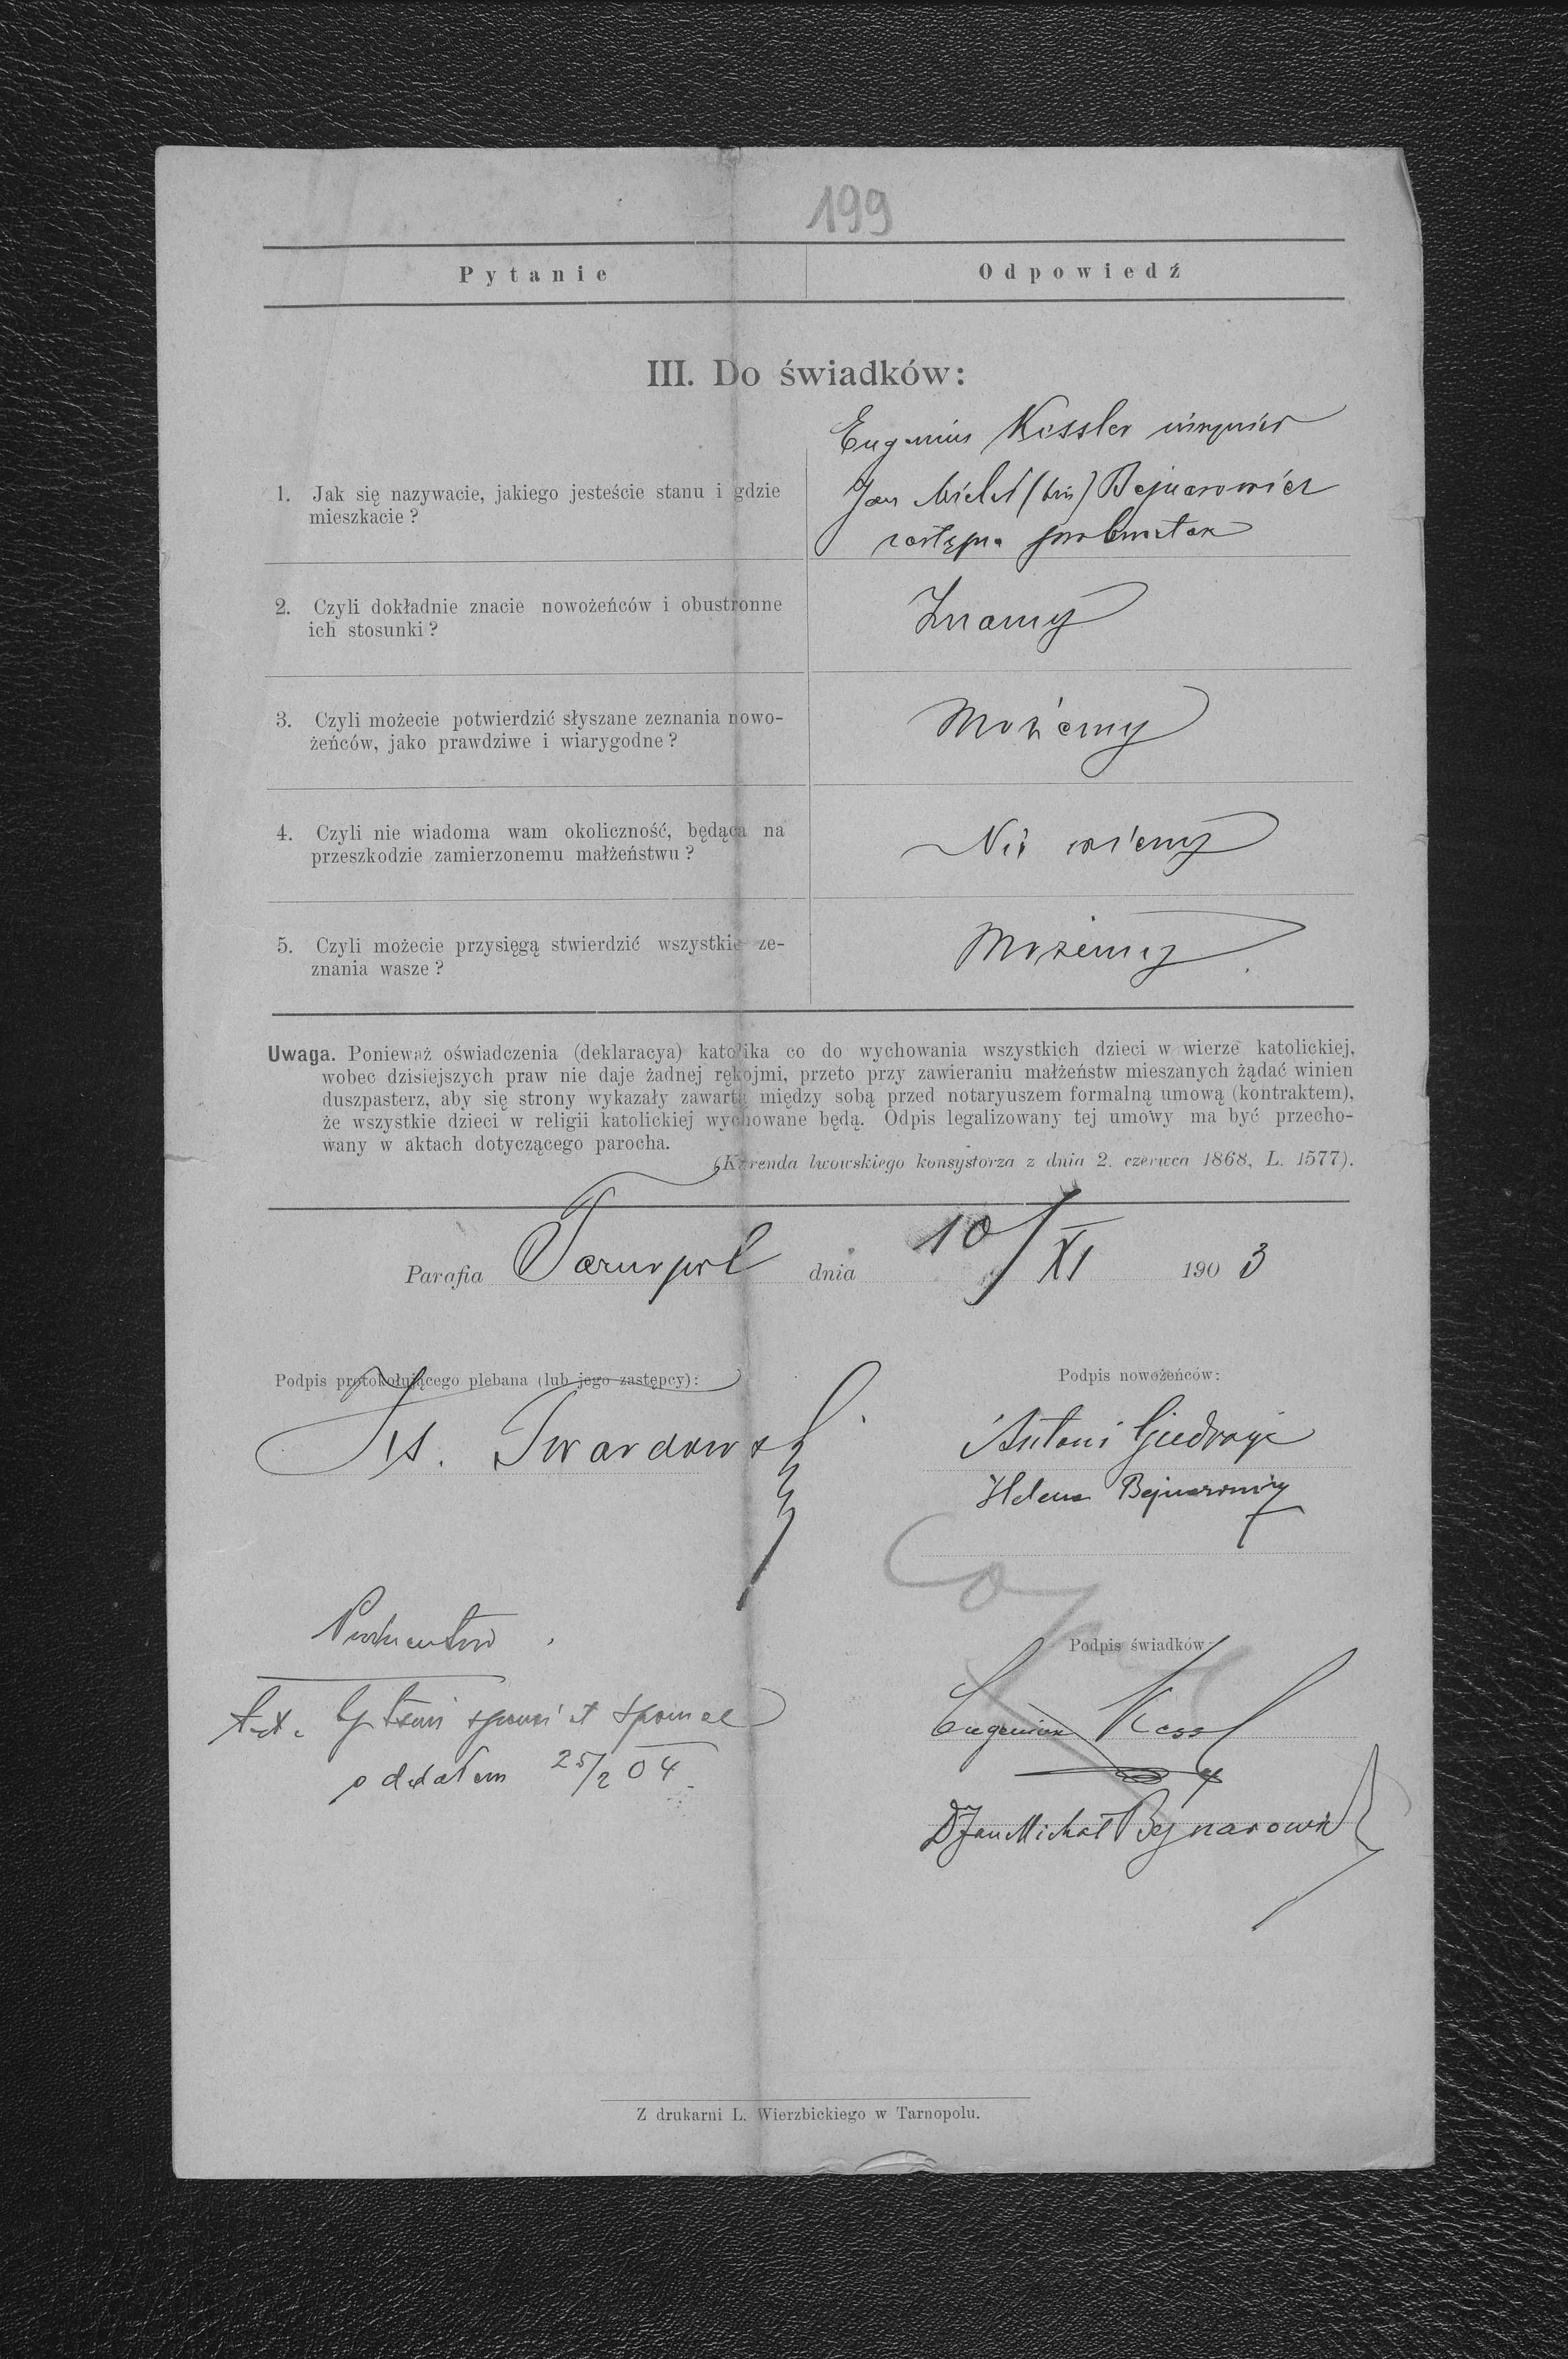 199
Pytanie Odpowiedź
III. Do świadków:
Eugeniusz Kessler inżynier
1. Jak się nazywacie, jakiego jesteście stanu i gdzie
mieszkacie?
Jan Michał Bejnarowicz
zastępca
2. Czyli dokładnie znacie nowożeńców i obustronne
ich stosunki?
Znamy
3. Czyli możecie potwierdzić słyszane zeznania nowo-
żeńców, jako prawdziwe i wiarygodne?
Możemy
4. Czyli nie wiadoma wam okoliczność, będąca na
przeszkodzie zamierzonemu małżeństwu?
Nie wiemy
5. Czyli możecie przysięgą stwierdzić wszystkie ze-
znania wasze?
Możemy
Uwaga. Ponieważ oświadczenia (deklaracya) katolika co do wychowania wszystkich dzieci w wierze katolickiej,
wobec dzisiejszych praw nie daje żadnej rękojmi, przeto przy zawieraniu małżeństw mieszanych żądać winien
duszpasterz, aby się strony wykazały zawartą między sobą przed notaryuszem formalną umową (kontraktem),
że wszystkie dzieci w religii katolickiej wychowane będą. Odpis legalizowany tej umowy ma być przecho-
wany w aktach dotyczącego parocha.
(Kurenda lwowskiego konsystorza z dnia 2. czerwca 1868, L. 1577).
Parafia Tarnopol dnia 10/XI 1903
Podpis protokołującego plebana (lub jego zastępcy):
Podpis nowożeńców:
Ks. Twardowski
Antoni
Helena Bejnarowicz
Podpis świadków:
Eugeniusz Kessler
oddałem 25/2 04
Jan Michał Bejnarowicz
Z drukarni L. Wierzbickiego w Tarnopolu.